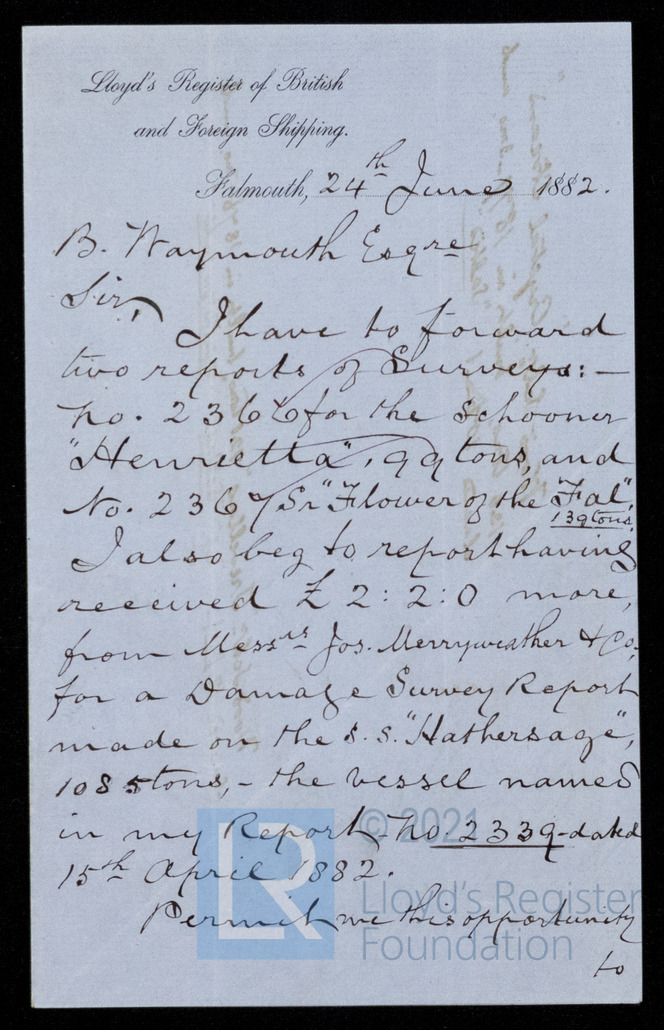 Lloyd's Register of British
and Foreign Shipping.
Falmouth, 24th June 1882.
B. Waymouth Esqre
Sir,
I have to forward
two reports of Surveys:—
No. 2366 for the Schooner
"Henrietta", 99 tons, and
No. 2367 Sr "Flower of the Fal",
139 tons.
I also beg to report having
received £2:2:0 more,
from Messrs Jos. Merryweather & Co.
for a Damage Survey Report
made on the s.s. "Hathersage",
1085 tons, - the vessel named
in my Report No. 2339 - dated
15th April 1882.
Permit me this opportunity
to
© 2021
LR
Lloyd's Register
Foundation